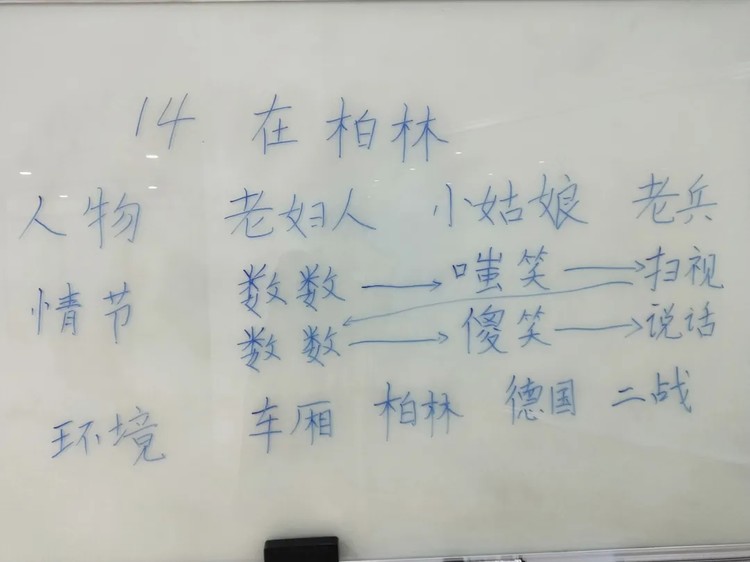 14 在柏林
人物 老妇人 小姑娘 老兵
情节 数数 → 嗤笑 → 扫视
数数 → 傻笑 → 说话
环境 车厢 柏林 德国 二战